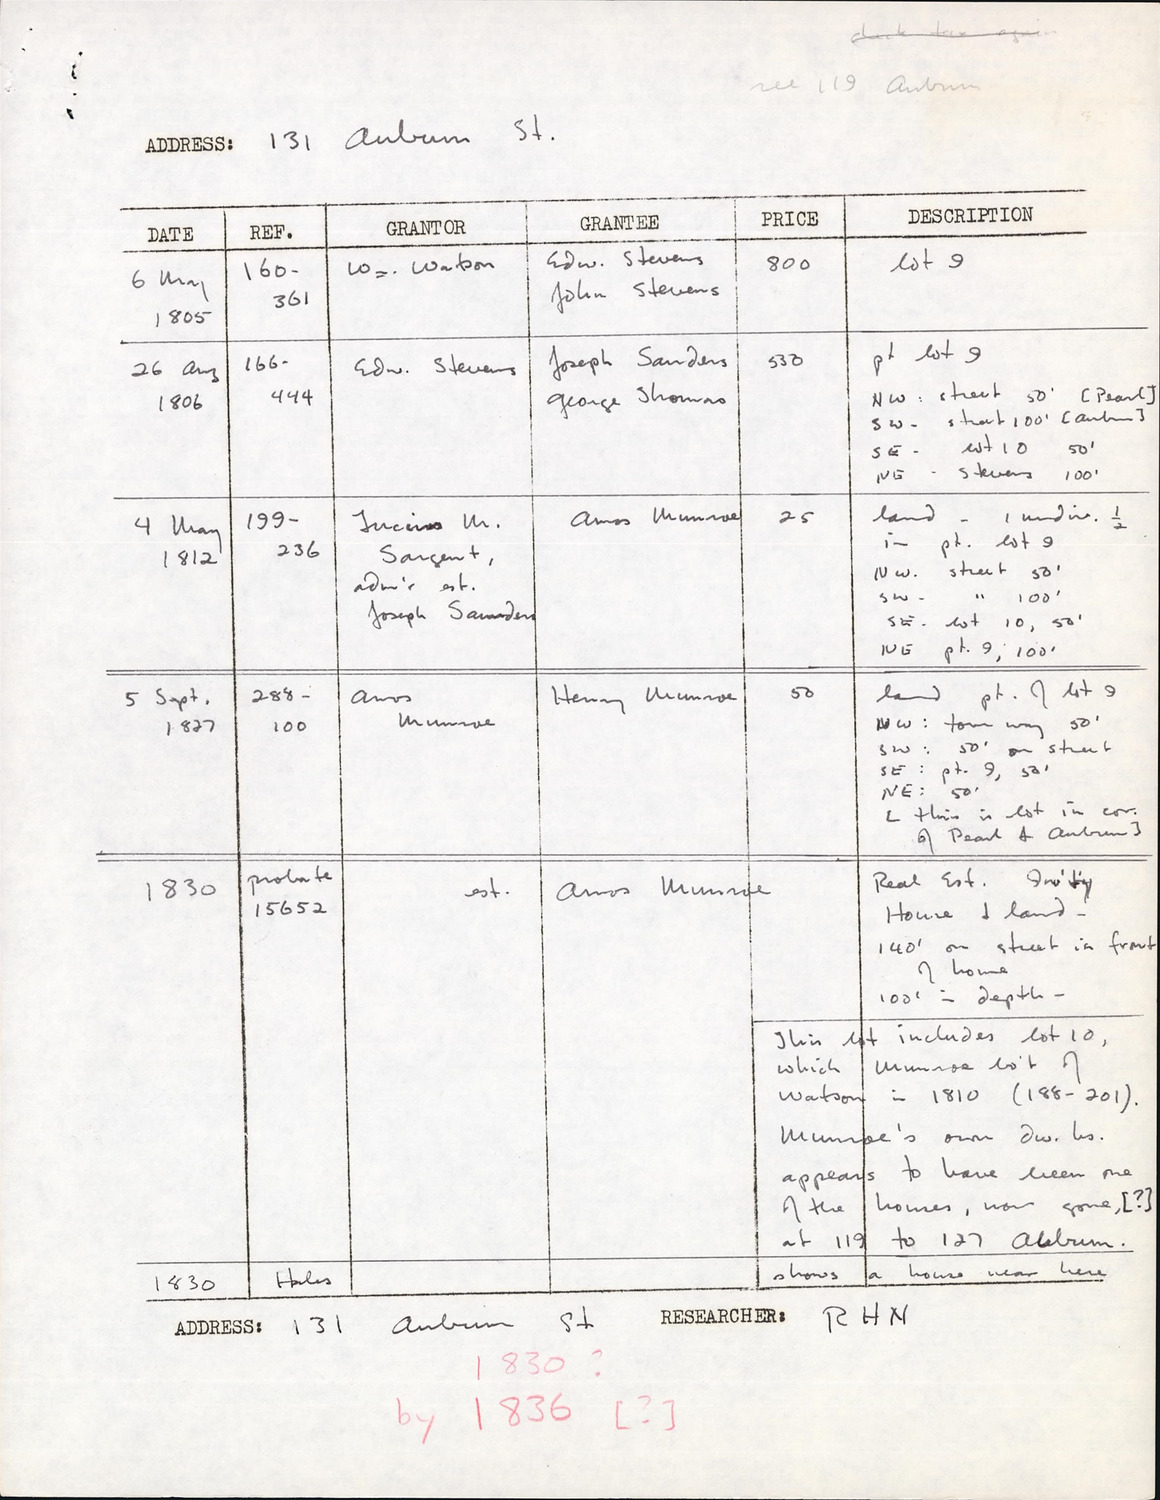 check tax again
see 119 Auburn
ADDRESS: 131 Auburn St.
DATE REF. GRANTOR GRANTEE PRICE DESCRIPTION
6 May 160- Wm. Watson Edw. Stevens 800 lot 9
1805 361 John Stevens
26 Aug 166- Edw. Stevens Joseph Sanders 530 pt lot 9
1806 444 George Thomas
NW: street 50' [Pearl]
SW- street 100' [Auburn]
SE- lot 10 50'
NE - Stevens 100'
4 May 199- Lucius M. Amos Munroe 25 land - 1 undiv. ½
1812 236 Sargent, in pt. lot 9
adm'r est. NW. street 50'
Joseph Saunders SW- " 100'
SE- lot 10, 50'
NE pt. 9, 100'
5 Sept. 288- Amos Henry Munroe 50 land pt. of lot 9
1827 100 Munroe NW: town way 50'
SW: 50' on street
SE: pt. 9, 50'
NE: 50'
[this is lot in cor.
of Pearl & Auburn]
1830 probate est. Amos Munroe Real Est. Inv'ty
15652 House & land -
140' on street in front
of home
100' in depth -
This lot includes lot 10,
which Munroe bo't of
Watson in 1810 (188-201).
Munroe's own dw. hs.
appears to have been one
of the houses, now gone, [?]
at 119 to 127 Auburn.
1830 Hales shows a house near here
ADDRESS: 131 Auburn St RESEARCHER: RHN
1830?
by 1836 [?]